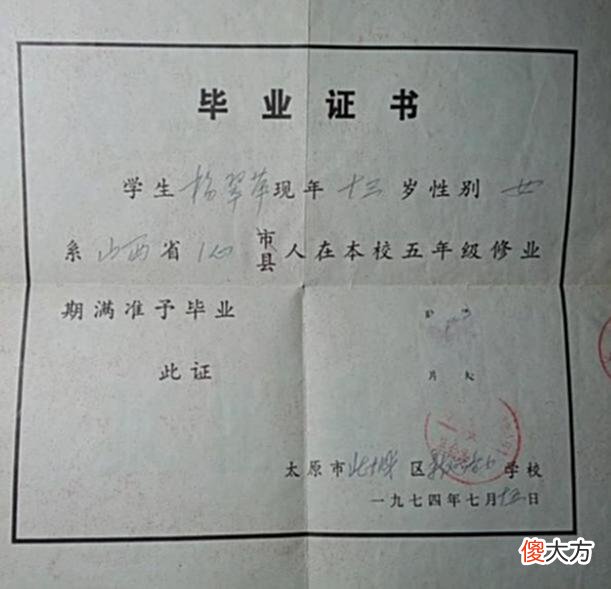 毕业证书
学生杨翠萍现年十三岁性别女
系山西省 市县人在本校五年级修业
期满准予毕业
此证
太原市北城区 学校
一九七四年七月十五日
傻大方